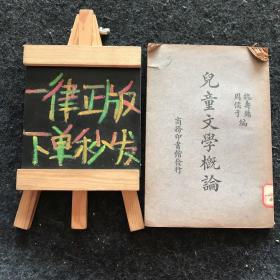 一律正版
下单秒发
周侯于編
兒童文學概論
商務印書館發行